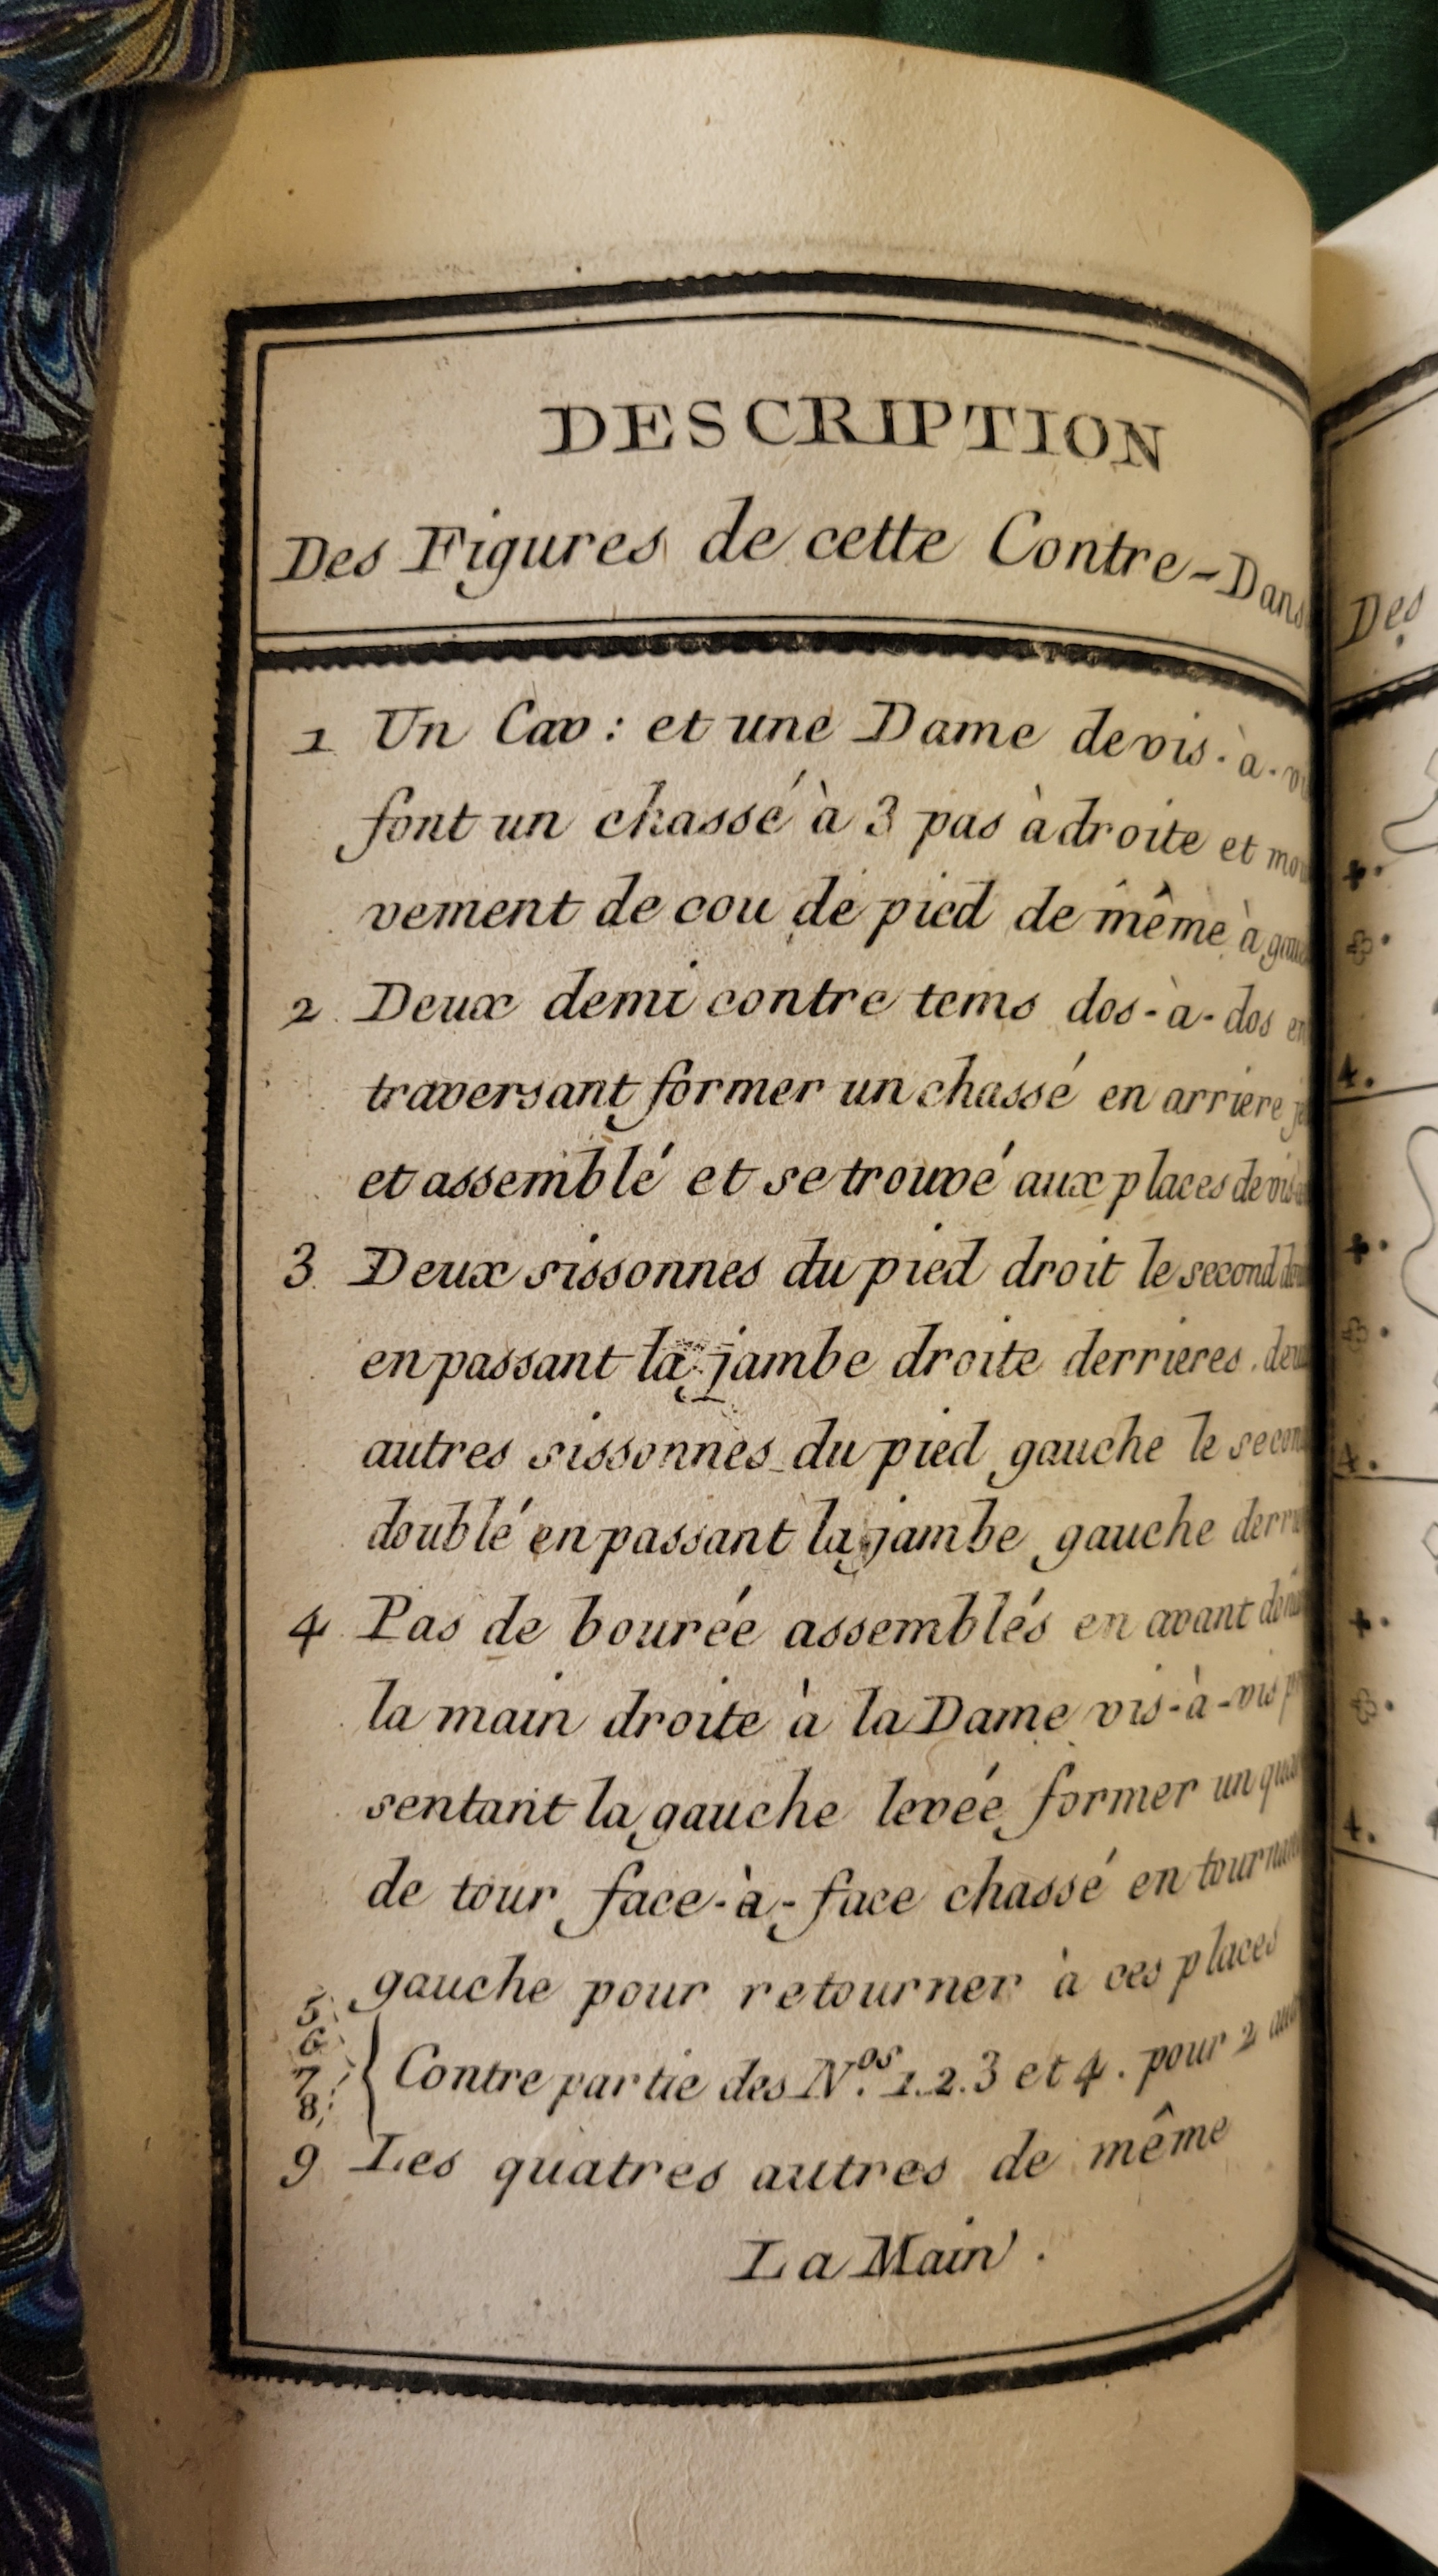 DESCRIPTION
Des Figures de cette Contre-Dans
1 Un Cav : et une Dame devis-à-vi
font un chassé à 3 pas à droite et mou
vement de cou de pied de même à gau
2 Deux demi contre tems dos-à-dos en
traversant former un chassé en arriere
et assemblé et se trouvé aux places de vis
3 Deux sissonnes du pied droit le second
en passant la jambe droite derrieres. deu
autres sissonnes du pied gauche le secon
doublé en passant la jambe gauche derri
4 Pas de bourée assemblés en avant
la main droite à la Dame vis-à-vis
sentant la gauche levée former un qua
de tour face-à-face chassé en tournan
gauche pour retourner à ces places
5.
6.
7. Contre partie des N.os 1.2.3 et 4. pour 2
8.
9 Les quatres autres de même
La Main .
Des
4.
4.
4.